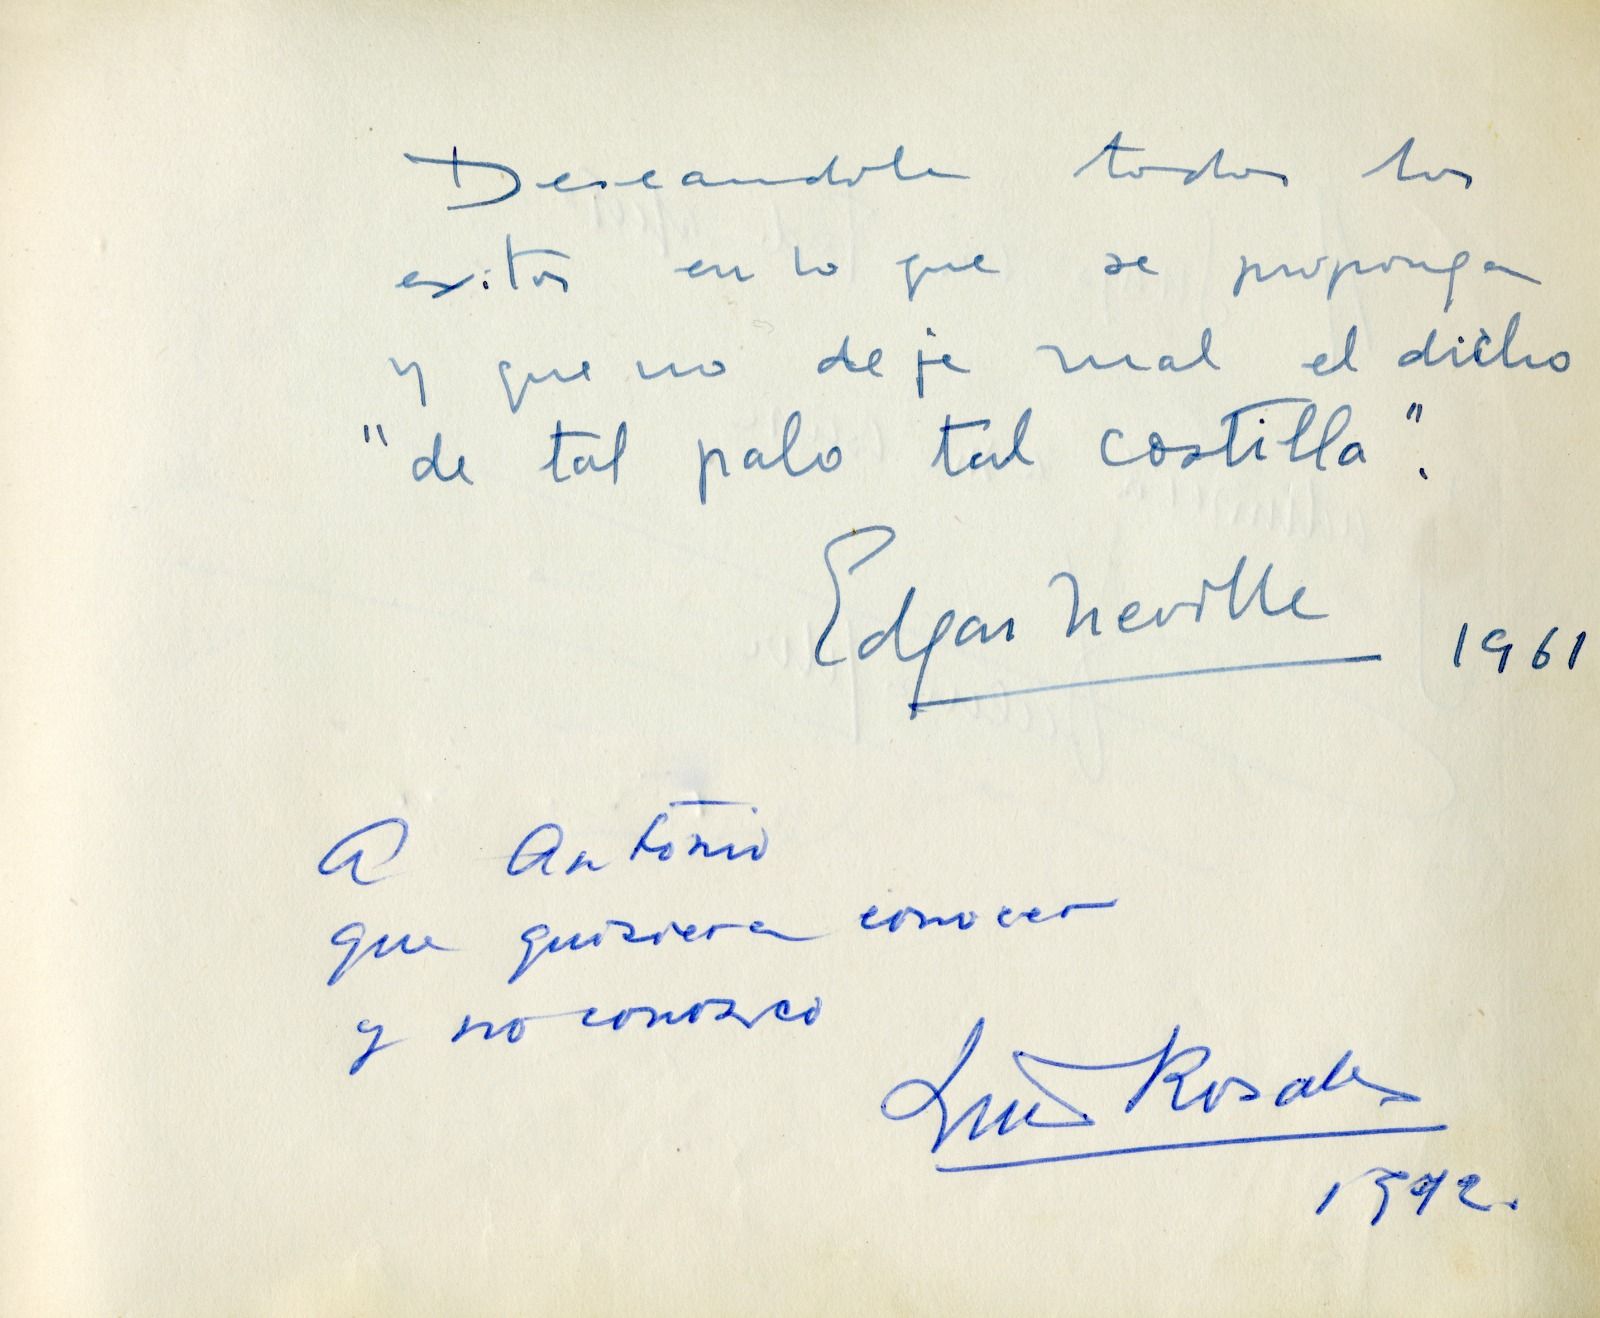 Deseandole todos los
exitos en lo que se proponga
y que no deje mal el dicho
"de tal palo tal costilla".
Edgar Neville 1961
A Antonio
que quisiera conocer
y no conozco
Luis Rosales
1972.